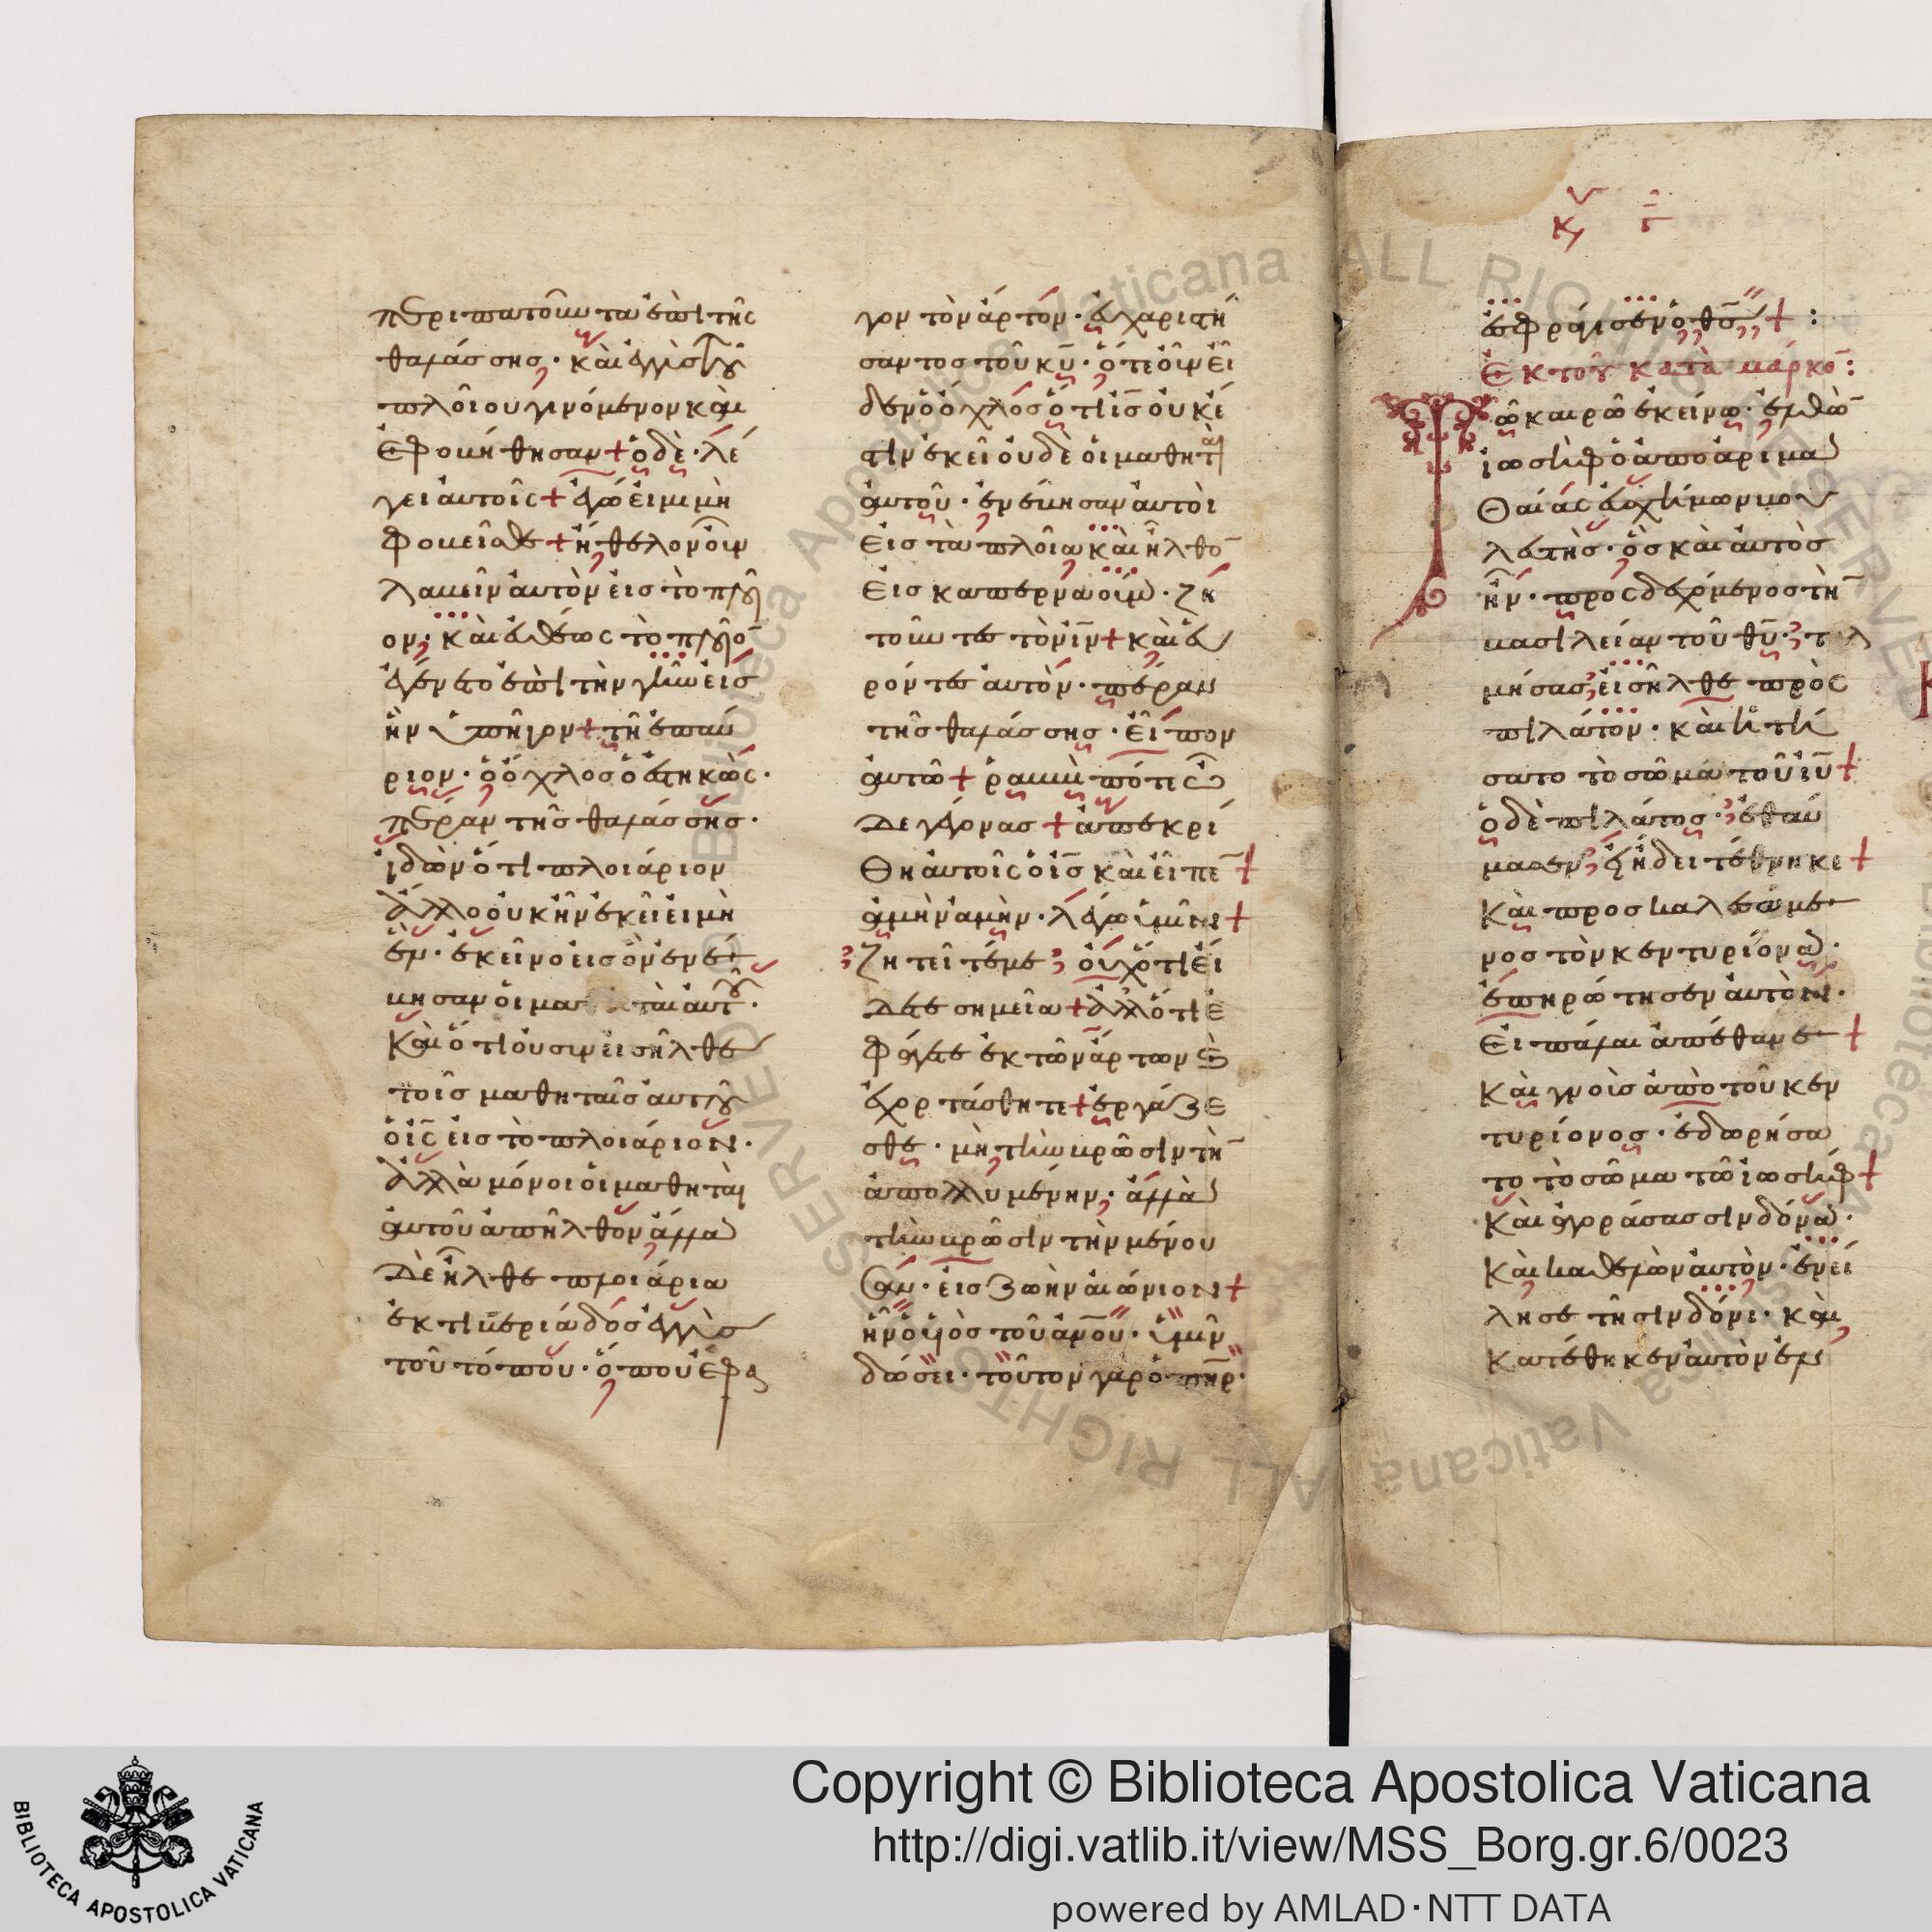 περιπατοῦντα ἐπὶ τῆς
θαλάσσης· καὶ ἐγγὺς τοῦ
πλοίου γινόμενον καὶ
ἐφοβήθησαν + ὁ δὲ· λέ
γει αὐτοῖς + ἐγώ εἰμι μὴ
φοβεῖσθε + ἤθελον οὖν
λαβεῖν αὐτὸν εἰς τὸ πλοῖ
ον· καὶ εὐθέως τὸ πλοῖο̅
ἐγένετο ἐπὶ τὴν γῆν εἰς
ἣν ὑπῆγον + τῇ ἐπαύ
ριον· ὁ ὄχλος ὁ ἑστηκὼς·
πέραν τῆς θαλάσσης·
ἰδὼν ὅτι πλοιάριον
ἄλλο οὐκ ἦν ἐκεῖ εἰ μὴ
ἓν· ἐκεῖνο εἰς ὃν ἐνέ
βησαν οἱ μα τὰι αὐτοῦ·
Καὶ ὅτι οὐ συνεισῆλθε
τοῖς μαθηταῖς αὐτοῦ
ὁ ις̅ εἰς τὸ πλοιάριον·
ἀλλὰ μόνοι οἱ μαθηταὶ
αὐτοῦ ἀπῆλθον ἄλλα
Δὲ ἦλθε πλοιάρια
ἐκ τιβεριάδος ἐγγὺς
τοῦ τόπου· ὅπου ἔφα
γον τὸν ἄρτον· εὐχαριστή
σαντος τοῦ κυ̅· ὅτε οὖν εἶ
δεν ὁ ὄχλος ὅτι ις̅ οὐκ ἔ
στιν ἐκεῖ οὐδὲ οἱ μαθητὰι
αὐτοῦ· ἐνέβησαν αὐτοὶ
εἰς τὰ πλοῖα καὶ ἦλθο̅
εἰς καπερναούμ· ζη
τοῦντες τὸν ιν̅ + καὶ εὑ
ρόντες αὐτὸν· πέραν
τῆς θαλάσσης· εἶπον
αὐτῶ + ῥαββὶ πότε ὧ
Δε γέγονας + ἀπεκρί
Θη αὐτοῖς ὁ ις̅ καὶ εἶπε̅ +
ἀμὴν ἀμὴν· λέγω ὑμῖν +
Ζητεῖτέ με οὐχ ὅτι εἴ
Δετε σημεῖα + ἀλλ' ὅτι ἐ
φάγετε ἐκ τῶν ἄρτων καὶ
ἐχορτάσθητε + ἐργάζε
σθε· μὴ τὴν βρῶσιν τὴ̅
ἀπολλυμένην· ἀλλὰ
τὴν βρῶσιν τὴν μένου
σαν· εἰς ζωὴν αἰώνιον +
ἣν ὁ υἱὸς τοῦ ανου̅· ὑμῖν
δώσει· τοῦτον γὰρ ὁ πηρ̅·
κυ γ
ἐσφράγισεν ὁ θς̅ + :
Ἐκ τοῦ κατὰ μάρκο̅:
Τῶ καιρῶ ἐκείνω· ἐλθὼ̅
ἰωσὴφ ὁ ἀπὸ ἀριμα
Θαίας εὐσχήμων βου
λευτὴς· ὃς καὶ αὐτὸς
ἦν· προσδεχόμενος τὴ̅
βασιλείαν τοῦ θυ̅· τολ
μήσας εἰσῆλθε πρὸς
πιλάτον· καὶ ἠτή
σατο τὸ σῶμα τοῦ ιυ̅ +
ὁ δὲ πιλάτος· ἐθαύ
μασεν εἰ ἤδει τέθνηκε +
Καὶ προσκαλεσάμε
νος τὸν κεντυρίονα·
ἐπηρώτησεν αὐτὸν·
Εἰ πάλαι ἀπέθανε +
Καὶ γνοὺς ἀπὸ τοῦ κεν
τυρίονος· ἐδωρήσα
το τὸ σῶμα τῶ ἰωσὴφ +
Καὶ ἀγοράσας σινδόνα·
Καὶ καθελὼν αὐτὸν· ἐνεί
λησε τῇ σινδόνι· καὶ
Κατέθηκεν αὐτὸν ἐν
Copyright © Biblioteca Apostolica Vaticana
http://digi.vatlib.it/view/MSS_Borg.gr.6/0023
powered by AMLAD·NTT DATA
BIBLIOTECA APOSTOLICA VATICANA